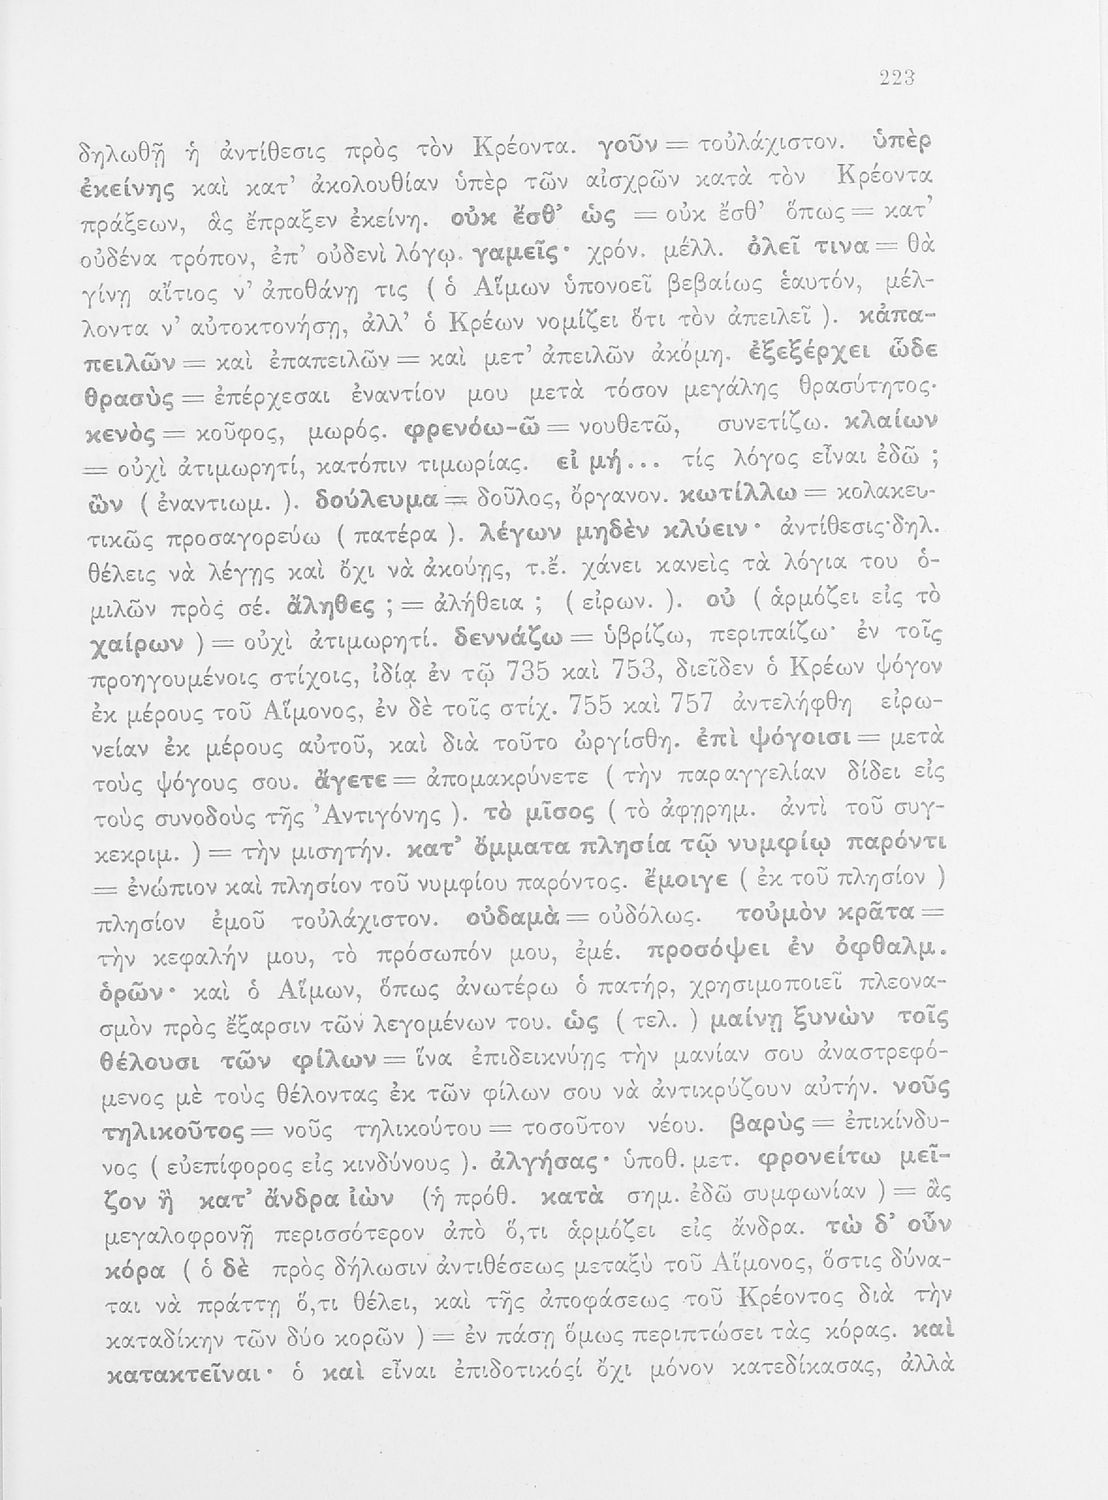 223
δηλωθῇ ἡ ἀντίθεσις πρὸς τὸν Κρέοντα. γοῦν = τοὐλάχιστον. ὑπὲρ
ἐκείνης καὶ κατ’ ἀκολουθίαν ὑπὲρ τῶν αἰσχρῶν κατὰ τὸν Κρέοντα
πράξεων, ἃς ἔπραξεν ἐκείνη. οὐκ ἔσθ’ ὡς = οὐκ ἔσθ’ ὅπως = κατ’
οὐδένα τρόπον, ἐπ’ οὐδενὶ λόγῳ. γαμεῖς· χρόν. μέλλ. ὀλεῖ τινα = θὰ
γίνῃ αἴτιος ν’ ἀποθάνῃ τις ( ὁ Αἵμων ὑπονοεῖ βεβαίως ἑαυτόν, μέλ-
λοντα ν’ αὐτοκτονήσῃ, ἀλλ’ ὁ Κρέων νομίζει ὅτι τὸν ἀπειλεῖ ). κἀπα-
πειλῶν = καὶ ἐπαπειλῶν = καὶ μετ’ ἀπειλῶν ἀκόμη. ἐξεξέρχει ὧδε
θρασὺς = ἐπέρχεσαι ἐναντίον μου μετὰ τόσον μεγάλης θρασύτητος·
κενὸς = κοῦφος, μωρός. φρενόω-ῶ = νουθετῶ, συνετίζω. κλαίων
= οὐχὶ ἀτιμωρητί, κατόπιν τιμωρίας. εἰ μή... τίς λόγος εἶναι ἐδῶ ;
ὢν ( ἐναντιωμ. ). δούλευμα = δοῦλος, ὄργανον. κωτίλλω = κολακευ-
τικῶς προσαγορεύω ( πατέρα ). λέγων μηδὲν κλύειν· ἀντίθεσις·δηλ.
θέλεις νὰ λέγῃς καὶ ὄχι νὰ ἀκούῃς, τ.ἔ. χάνει κανεὶς τὰ λόγια του ὁ-
μιλῶν πρὸς σέ. ἄληθες ; = ἀλήθεια ; ( εἰρων. ). οὐ ( ἁρμόζει εἰς τὸ
χαίρων ) = οὐχὶ ἀτιμωρητί. δεννάζω = ὑβρίζω, περιπαίζω· ἐν τοῖς
προηγουμένοις στίχοις, ἰδίᾳ ἐν τῷ 735 καὶ 753, διεῖδεν ὁ Κρέων ψόγον
ἐκ μέρους τοῦ Αἵμονος, ἐν δὲ τοῖς στίχ. 755 καὶ 757 ἀντελήφθη εἰρω-
νείαν ἐκ μέρους αὐτοῦ, καὶ διὰ τοῦτο ὠργίσθη. ἐπὶ ψόγοισι = μετὰ
τοὺς ψόγους σου. ἄγετε = ἀπομακρύνετε ( τὴν παραγγελίαν δίδει εἰς
τοὺς συνοδοὺς τῆς Ἀντιγόνης ). τὸ μῖσος ( τὸ ἀφῃρημ. ἀντὶ τοῦ συγ-
κεκριμ. ) = τὴν μισητήν. κατ’ ὄμματα πλησία τῷ νυμφίῳ παρόντι
= ἐνώπιον καὶ πλησίον τοῦ νυμφίου παρόντος. ἔμοιγε ( ἐκ τοῦ πλησίον )
πλησίον ἐμοῦ τοὐλάχιστον. οὐδαμὰ = οὐδόλως. τοὐμὸν κρᾶτα =
τὴν κεφαλήν μου, τὸ πρόσωπόν μου, ἐμέ. προσόψει ἐν ὀφθαλμ.
ὁρῶν· καὶ ὁ Αἵμων, ὅπως ἀνωτέρω ὁ πατήρ, χρησιμοποιεῖ πλεονα-
σμὸν πρὸς ἔξαρσιν τῶν λεγομένων του. ὡς ( τελ. ) μαίνῃ ξυνὼν τοῖς
θέλουσι τῶν φίλων = ἵνα ἐπιδεικνύῃς τὴν μανίαν σου ἀναστρεφό-
μενος μὲ τοὺς θέλοντας ἐκ τῶν φίλων σου νὰ ἀντικρύζουν αὐτήν. νοῦς
τηλικοῦτος = νοῦς τηλικούτου = τοσοῦτον νέου. βαρὺς = ἐπικίνδυ-
νος ( εὐεπίφορος εἰς κινδύνους ). ἀλγήσας· ὑποθ. μετ. φρονείτω μεῖ-
ζον ἢ κατ’ ἄνδρα ἰὼν (ἡ πρόθ. κατὰ σημ. ἐδῶ συμφωνίαν ) = ἂς
μεγαλοφρονῇ περισσότερον ἀπὸ ὅ,τι ἁρμόζει εἰς ἄνδρα. τὼ δ’ οὖν
κόρα ( ὁ δὲ πρὸς δήλωσιν ἀντιθέσεως μεταξὺ τοῦ Αἵμονος, ὅστις δύνα-
ται νὰ πράττῃ ὅ,τι θέλει, καὶ τῆς ἀποφάσεως τοῦ Κρέοντος διὰ τὴν
καταδίκην τῶν δύο κορῶν ) = ἐν πάσῃ ὅμως περιπτώσει τὰς κόρας. καὶ
κατακτεῖναι· ὁ καὶ εἶναι ἐπιδοτικόςί ὄχι μόνον κατεδίκασας, ἀλλὰ